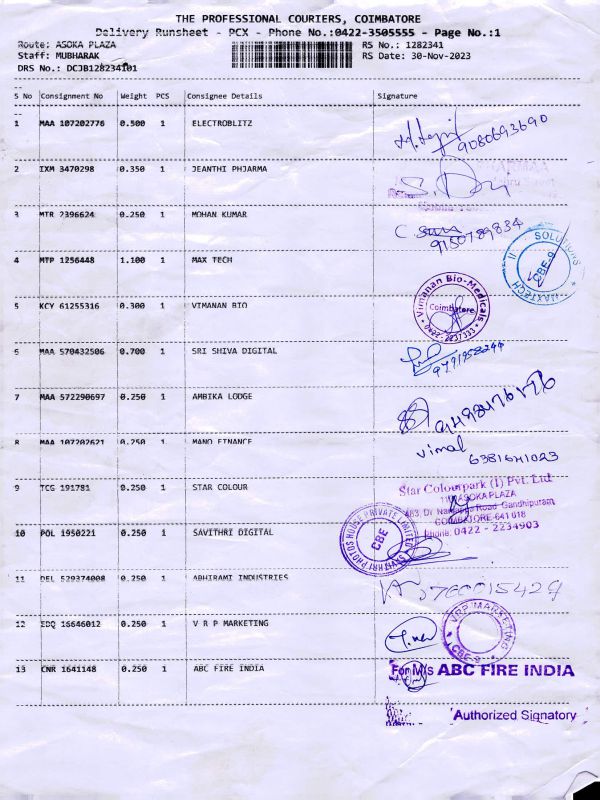 THE PROFESSIONAL COURIERS, COIMBATORE
Delivery Runsheet - PCX - Phone No.:0422-3505555 - Page No.:1
Route: ASOKA PLAZA RS No.: 1282341
Staff: MUBHARAK RS Date: 30-Nov-2023
DRS No.: DCJB128234101
S No Consignment No Weight PCS Consignee Details Signature
1 MAA 107202776 0.500 1 ELECTROBLITZ
9080693690
2 IXM 3470298 0.350 1 JEANTHI PHJARMA
3 MTR 2396624 0.250 1 MOHAN KUMAR
9150789834
4 MTP 1256448 1.100 1 MAX TECH
MAXTECH SOLUTIONS CBE-9
5 KCY 61255316 0.300 1 VIMANAN BIO
Vimanan Bio-Medicals
Coimbatore
0422-2237333
6 MAA 570432506 0.700 1 SRI SHIVA DIGITAL
7 MAA 572290697 0.250 1 AMBIKA LODGE
8 MAA 107202621 0.250 1 MANO FINANCE
Vimal
6381641023
9 TCG 191781 0.250 1 STAR COLOUR
Star Colourpark (I) Pvt. Ltd
ASOKA PLAZA
Road Gandhipuram
COIMBATORE-641 018
Phone: 0422 - 2234903
10 POL 1950221 0.250 1 SAVITHRI DIGITAL
SAVITHRI PHOTOS HOUSE PRIVATE LIMITED
CBE
11 DEL 529374008 0.250 1 ABHIRAMI INDUSTRIES
12 EDQ 16646012 0.250 1 V R P MARKETING
VRP MARKETING
CBE-9
13 CNR 1641148 0.250 1 ABC FIRE INDIA
For M/s ABC FIRE INDIA
Authorized Signatory